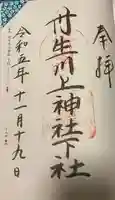 奉拝
丹生川上神社下社
令和五年十一月十九日